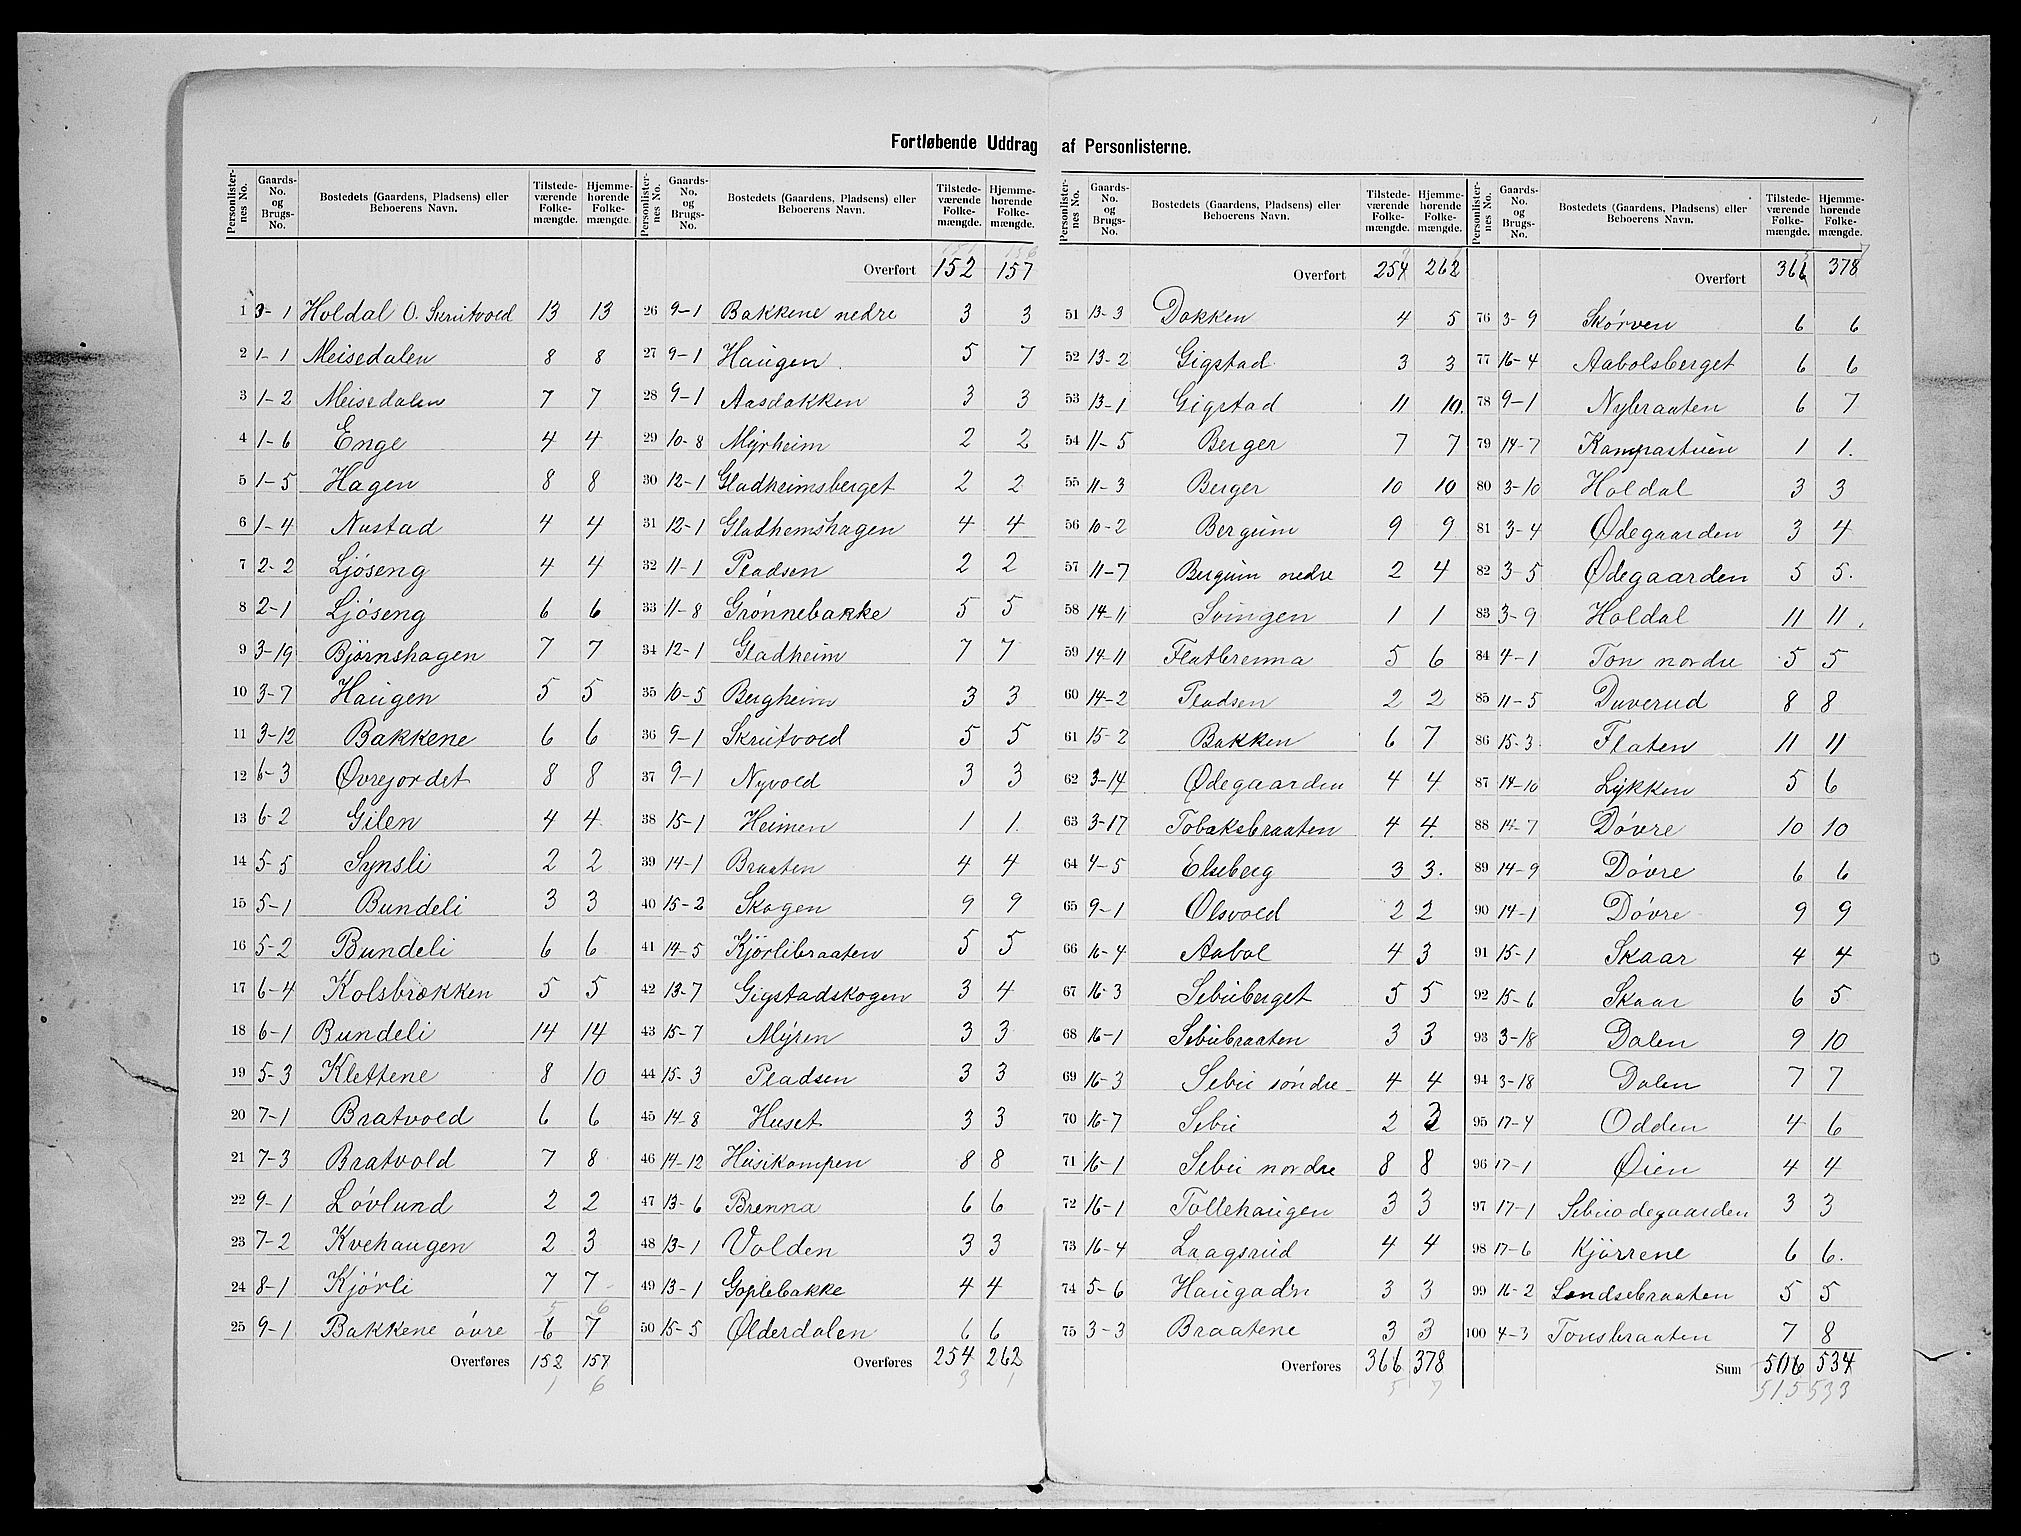 Fortløbende Uddrag af Personlisterne.
Personlister-nes No. Gaards-No. og Brugs-No. Bostedets (Gaardens, Pladsens) eller Beboerens Navn. Tilstede-værende Folke-mængde. Hjemme-hørende Folke-mængde.
1 3-1 Holdal O. Skrutvold 13 13
2 1-1 Meisedalen 8 8
3 1-2 Meisedalen 7 7
4 1-6 Enge 4 4
5 1-5 Hagen 8 8
6 1-4 Nustad 4 4
7 2-2 Ljöseng 4 4
8 2-1 Ljöseng 6 6
9 3-19 Björnshagen 7 7
10 3-7 Haugen 5 5
11 3-12 Bakkene 6 6
12 6-3 Øvrejordet 8 8
13 6-2 Gilen 4 4
14 5-5 Synsli 2 2
15 5-1 Bundeli 3 3
16 5-2 Bundeli 6 6
17 6-4 Kolsbrækken 5 5
18 6-1 Bundeli 14 14
19 5-3 Klettene 8 10
20 7-1 Bratvold 6 6
21 7-3 Bratvold 7 8
22 9-1 Lövlund 2 2
23 7-2 Kvehaugen 2 3
24 8-1 Kjörli 7 7
5 6
25 9-1 Bakkene övre 6 7
Overføres 152 157
1 6
Personlister-nes No. Gaards-No. og Brugs-No. Bostedets (Gaardens, Pladsens) eller Beboerens Navn. Tilstede-værende Folke-mængde. Hjemme-hørende Folke-mængde.
151 156
Overført 152 157
26 9-1 Bakkene nedre 3 3
27 9-1 Haugen 5 7
28 9-1 Aasdokken 3 3
29 10-8 Myrheim 2 2
30 12-1 Gladheimsberget 2 2
31 12-1 Gladhemshagen 4 4
32 11-1 Pladsen 2 2
33 11-8 Grönnebakke 5 5
34 12-1 Gladheim 7 7
35 10-5 Bergheim 3 3
36 9-1 Skrutvold 5 5
37 9-1 Nyvold 3 3
38 15-1 Heimen 1 1.
39 14-1 Braaten 4 4
40 15-2 Skogen 9 9
41 14-5 Kjörlibraaten 5 5
42 13-7 Gigstadskogen 3 4
43 15-7 Myren 3 3
44 15-3 Pladsen 3 3
45 14-8 Huset 3 3
46 14-12 Husikampen 8 8
47 13-6 Brenna 6 6
48 13-1 Volden 3 3
49 13-1 Goplebakke 4 4
50 15-5 Ølderdalen 6 6
Overføres 254 262
3 1
Personlister-nes No. Gaards-No. og Brugs-No. Bostedets (Gaardens, Pladsens) eller Beboerens Navn. Tilstede-værende Folke-mængde. Hjemme-hørende Folke-mængde.
Overført 254 262
51 13-3 Dokken 4 5
52 13-2 Gigstad 3 3
53 13-1 Gigstad 11 10.
54 11-5 Berger 7 7
55 11-3 Berger 10 10
56 10-2 Bergum 9 9
57 11-7 Bergum nedre 2 4
58 14-11 Svingen 1 1
59 14-11 Flatbrenna 5 6
60 14-2 Pladsen 2 2
61 15-2 Bakken 6 7
62 3-14 Ødegaarden 4 4
63 3-17 Tobaksbraaten 4 4.
64 4-5 Elseberg 3 3.
65 9-1 Olsvold 2 2
66 16-4 Aabol 4 3
67 16-3 Sebuberget 5 5
68 16-1 Sebubraaten 3 3
69 16-3 Sebu söndre 4 4
70 16-7 Sebu 2 2
71 16-1 Sebu nordre 8 8
72 16-1 Tollehaugen 3 3
73 16-4 Laagsrud 4 4
74 5-6 Haugadn 3 3
75 3-3 Braatene 3 3
Overføres 366 378
5 7
Personlister-nes No. Gaards-No. og Brugs-No. Bostedets (Gaardens, Pladsens) eller Beboerens Navn. Tilstede-værende Folke-mængde. Hjemme-hørende Folke-mængde.
Overført 366 378
76 3-9 Skörven 6 6
77 16-4 Aabolsberget 6 6
78 9-1 Nybraaten 6 7
79 14-7 Kampastuen 1 1.
80 3-10 Holdal 3 3
81 3-4 Ødegaarden 3 4
82 3-5 Ødegaarden 5 5.
83 3-9 Holdal 11 11.
84 4-1 Ton nordre 5 5
85 11-5 Duverud 8 8
86 15-3 Flaten 11 11
87 14-10 Lykken 5 6
88 14-7 Dövre 10 10
89 14-9 Dövre 6 6
90 14-1 Dövre 9 9
91 15-1 Skaar 4 4
92 15-6 Skaar 6 5
93 3-18 Dalen 9 10
94 3-18 Dalen 7 7
95 17-4 Odden 4 6
96 17-1 Øien 4 4
97 17-1 Sebuödegaarden 3 3
98 17-6 Kjörrene 6 6.
99 16-2 Sendsebraaten 5 5
100 4-3 Tonsbraaten 7 8
Sum 506 534
515 533